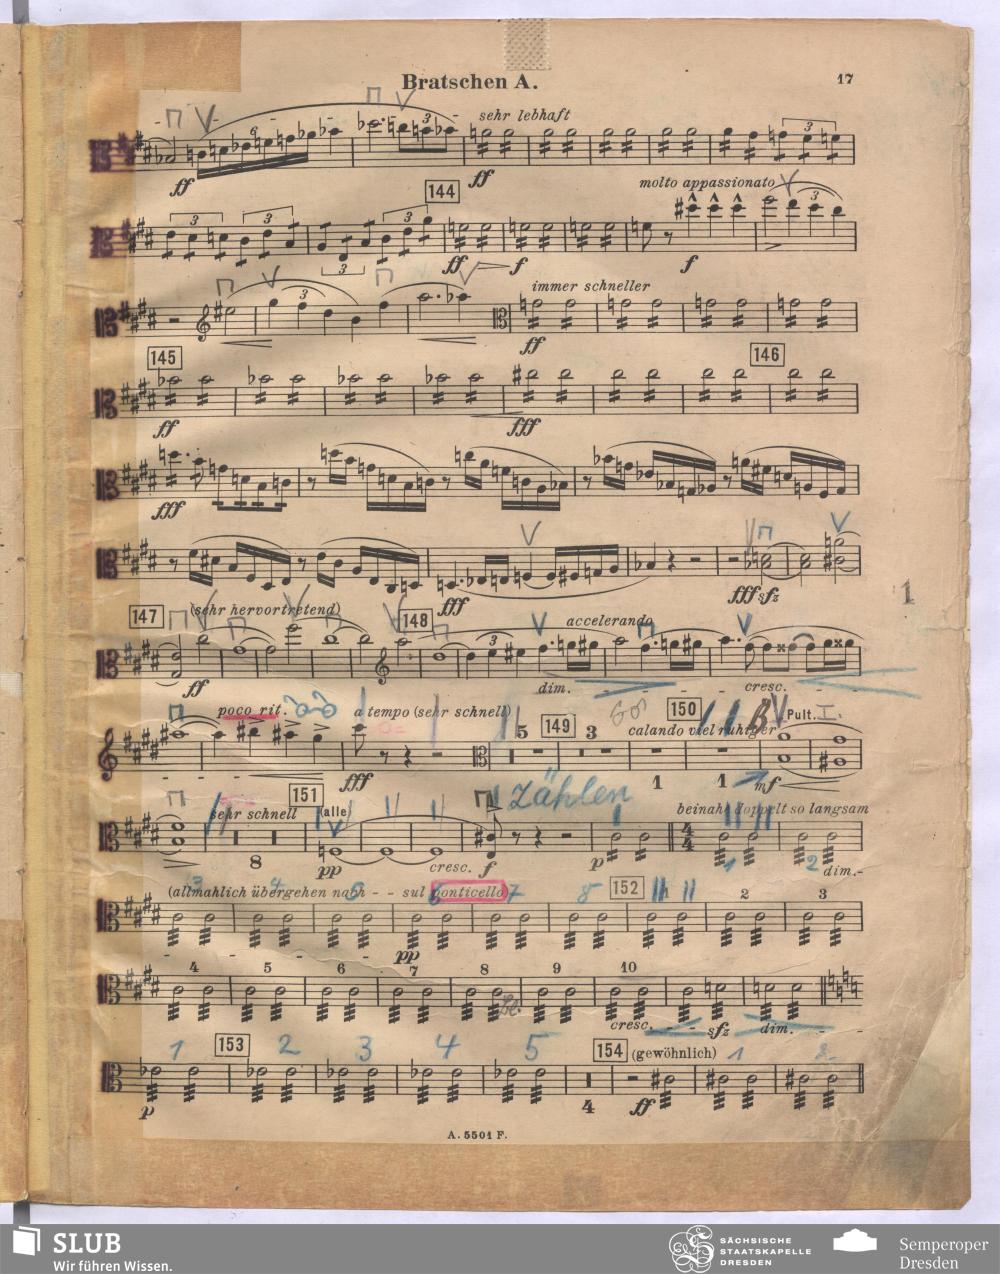 Bratschen A.
17
sehr lebhaft
6
3
3
ff
ff
144
molto appassionato
3
3
3
3
3
ff
f
f
immer schneller
3
ff
145
146
ff
fff
fff
fff
fff sfz
1
147
(sehr hervortretend)
148
accelerando
3
ff
dim.
cresc. - - -
poco rit.
a tempo (sehr schnell)
149
150
Pult. I.
5
3
calando viel ruhiger
fff
1
1
mf
Zählen
sehr schnell
151
(alle)
beinah doppelt so langsam
8
pp
cresc. f
p
4
4
1
2
dim.-
(allmählich übergehen nach - - sul ponticello)
3 4 5 6 7 8
152
2
3
- - - - pp
4 5 6 7 8 9 10
cresc. - - sfz dim. - -
1 153 2 3 4 5 154 (gewöhnlich) 1 2
p
4
ff
A. 5501 F.
SLUB
Wir führen Wissen.
SÄCHSISCHE
STAATSKAPELLE
DRESDEN
Semperoper
Dresden